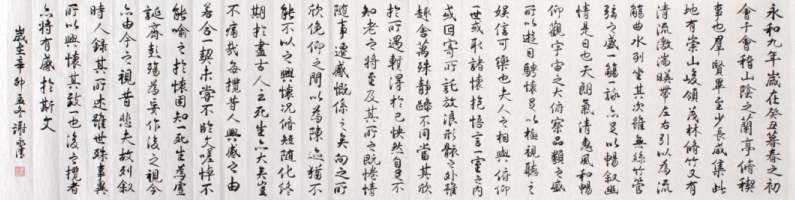 永和九年歲在癸丑暮春之初
會于會稽山陰之蘭亭脩稧
事也羣賢畢至少長咸集此
地有崇山峻領茂林脩竹又有
清流激湍暎帶左右引以為流
觴曲水列坐其次雖無絲竹管
弦之盛一觴一詠亦足以暢敘幽
情是日也天朗氣清惠風和暢
仰觀宇宙之大俯察品類之盛
所以遊目騁懷足以極視聽之
娛信可樂也夫人之相與俯仰
一世或取諸懷抱悟言一室之內
或因寄所託放浪形骸之外雖
趣舍萬殊靜躁不同當其欣
於所遇暫得於己快然自足不
知老之將至及其所之既惓情
隨事遷感慨係之矣向之所
欣俛仰之間以為陳迹猶不
能不以之興懷況脩短隨化終
期於盡古人云死生亦大矣豈
不痛哉每攬昔人興感之由
若合一契未嘗不臨文嗟悼不
能喻之於懷固知一死生為虛
誕齊彭殤為妄作後之視今
亦由今之視昔悲夫故列敘
時人錄其所述雖世殊事異
所以興懷其致一也後之攬者
亦將有感於斯文
歲在辛卯孟冬謝